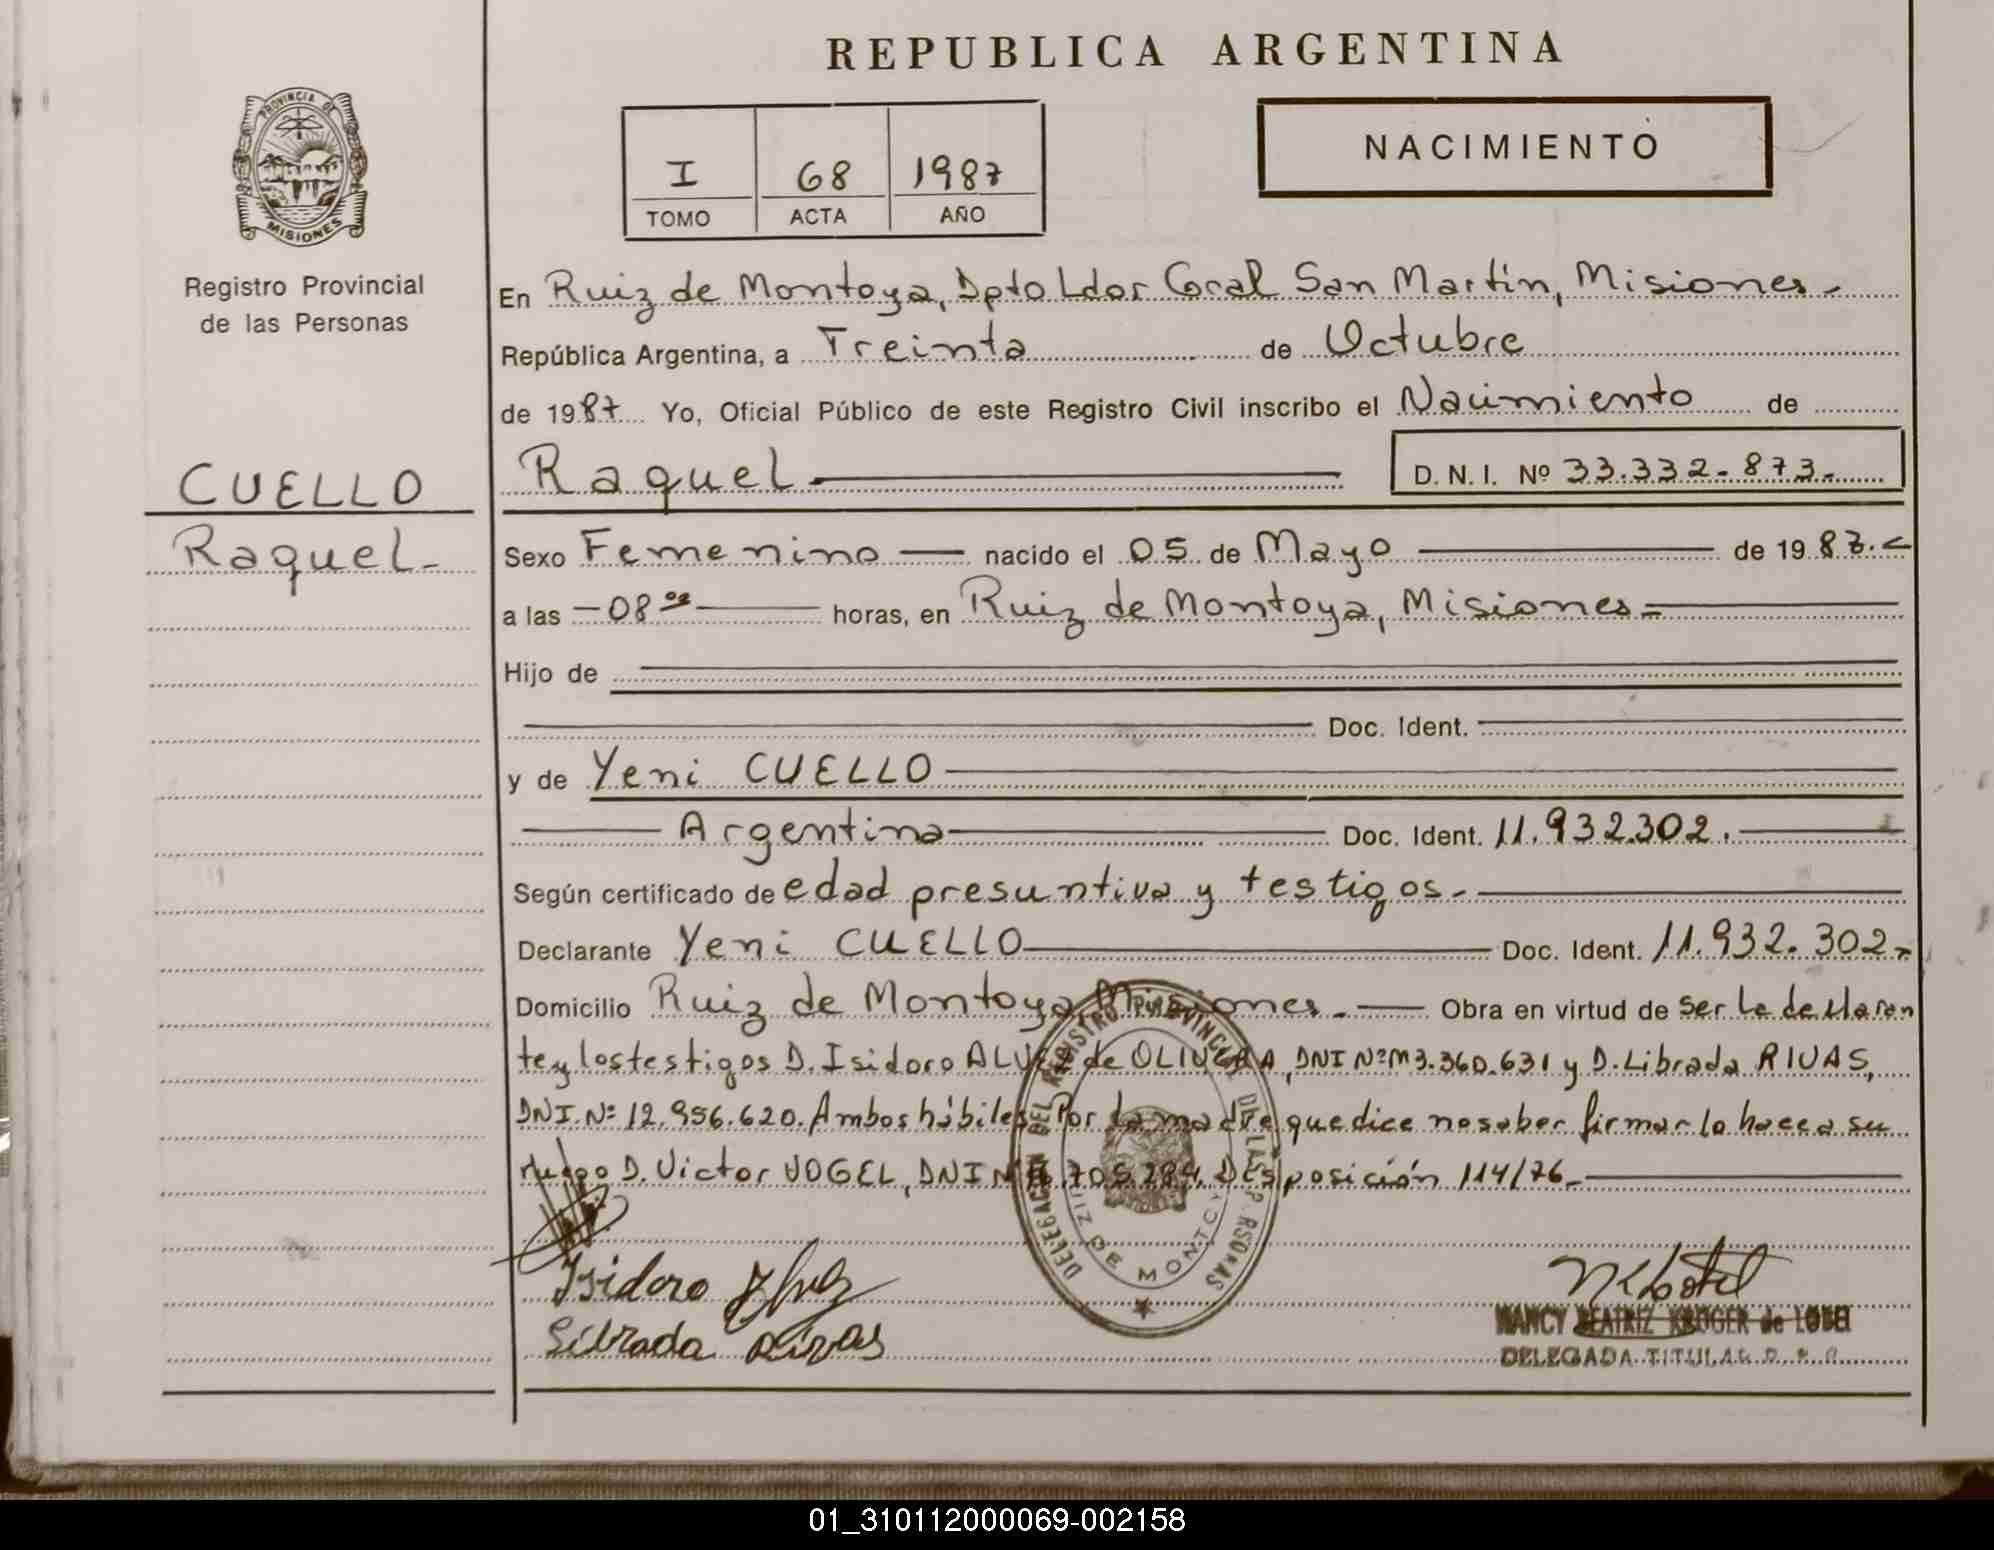 REPUBLICA ARGENTINA
PROVINCIA DE
MISIONES
Registro Provincial
de las Personas
I 68 1987
TOMO ACTA AÑO
NACIMIENTO
CUELLO
Raquel-
En Ruiz de Montoya, Dpto Ldor Gral San Martín, Misiones.
República Argentina, a Treinta de Octubre
de 1987 Yo, Oficial Público de este Registro Civil inscribo el Nacimiento de
Raquel D.N.I. Nº 33.332.873.-
Sexo Femenino nacido el 05 de Mayo de 1987.
a las -08 horas, en Ruiz de Montoya, Misiones=
Hijo de
Doc. Ident.
y de Yeni CUELLO
Argentina Doc. Ident. 11.932.302.
Según certificado de edad presuntiva y testigos.-
Declarante Yeni CUELLO Doc. Ident. 11.932.302-
Domicilio Ruiz de Montoya, Misiones.- Obra en virtud de ser la declaran
te y los testigos D. Isidoro ALVEZ de OLIVERA, DNI Nº M3.360.631 y D. Librada RIVAS,
DNI. Nº 12.956.620. Ambos hábiles. Por la madre que dice no saber firmar lo hace a su
ruego D. Victor VOGEL, DNI Disposición 114/76.-
DELEGACION DEL REGISTRO PROVINCIAL DE LAS PERSONAS
RUIZ DE MONTOYA
Isidoro
Librada Rivas
NANCY BEATRIZ KRUGER de LOBEL
DELEGADA TITULAR
01_310112000069-002158